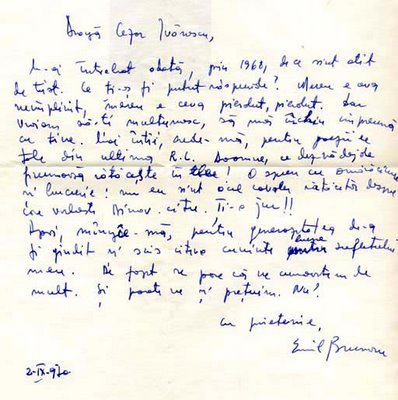 Dragă Cezar Ivănescu,
M-ai întrebat odată, prin 1968, de ce sînt atît
de trist. Ce ți-aș fi putut răspunde? Mereu e ceva
neîmplinit, mereu e ceva pierdut, pierdut. Dar
vreau să-ți mulțumesc, să mă închin împreună
cu tine. Mai întîi, crede-mă, pentru poeziile
tale din ultima R.L. Doamne, ce deznădejde
frumoasă rătăcește în ele! O spun cu
și bucurie: nu eu sînt acel rătăcit despre
care vorbește Dinov către. Ți-o jur!!
Apoi, mîngîie-mă, pentru generozitatea de-a
fi gîndit și scris cîteva cuvinte sufletului
meu. De fapt se pare că ne cunoaștem de
mult. Și poate ne și prețuim. Nu?
cu prietenie,
Emil
2-IX-970